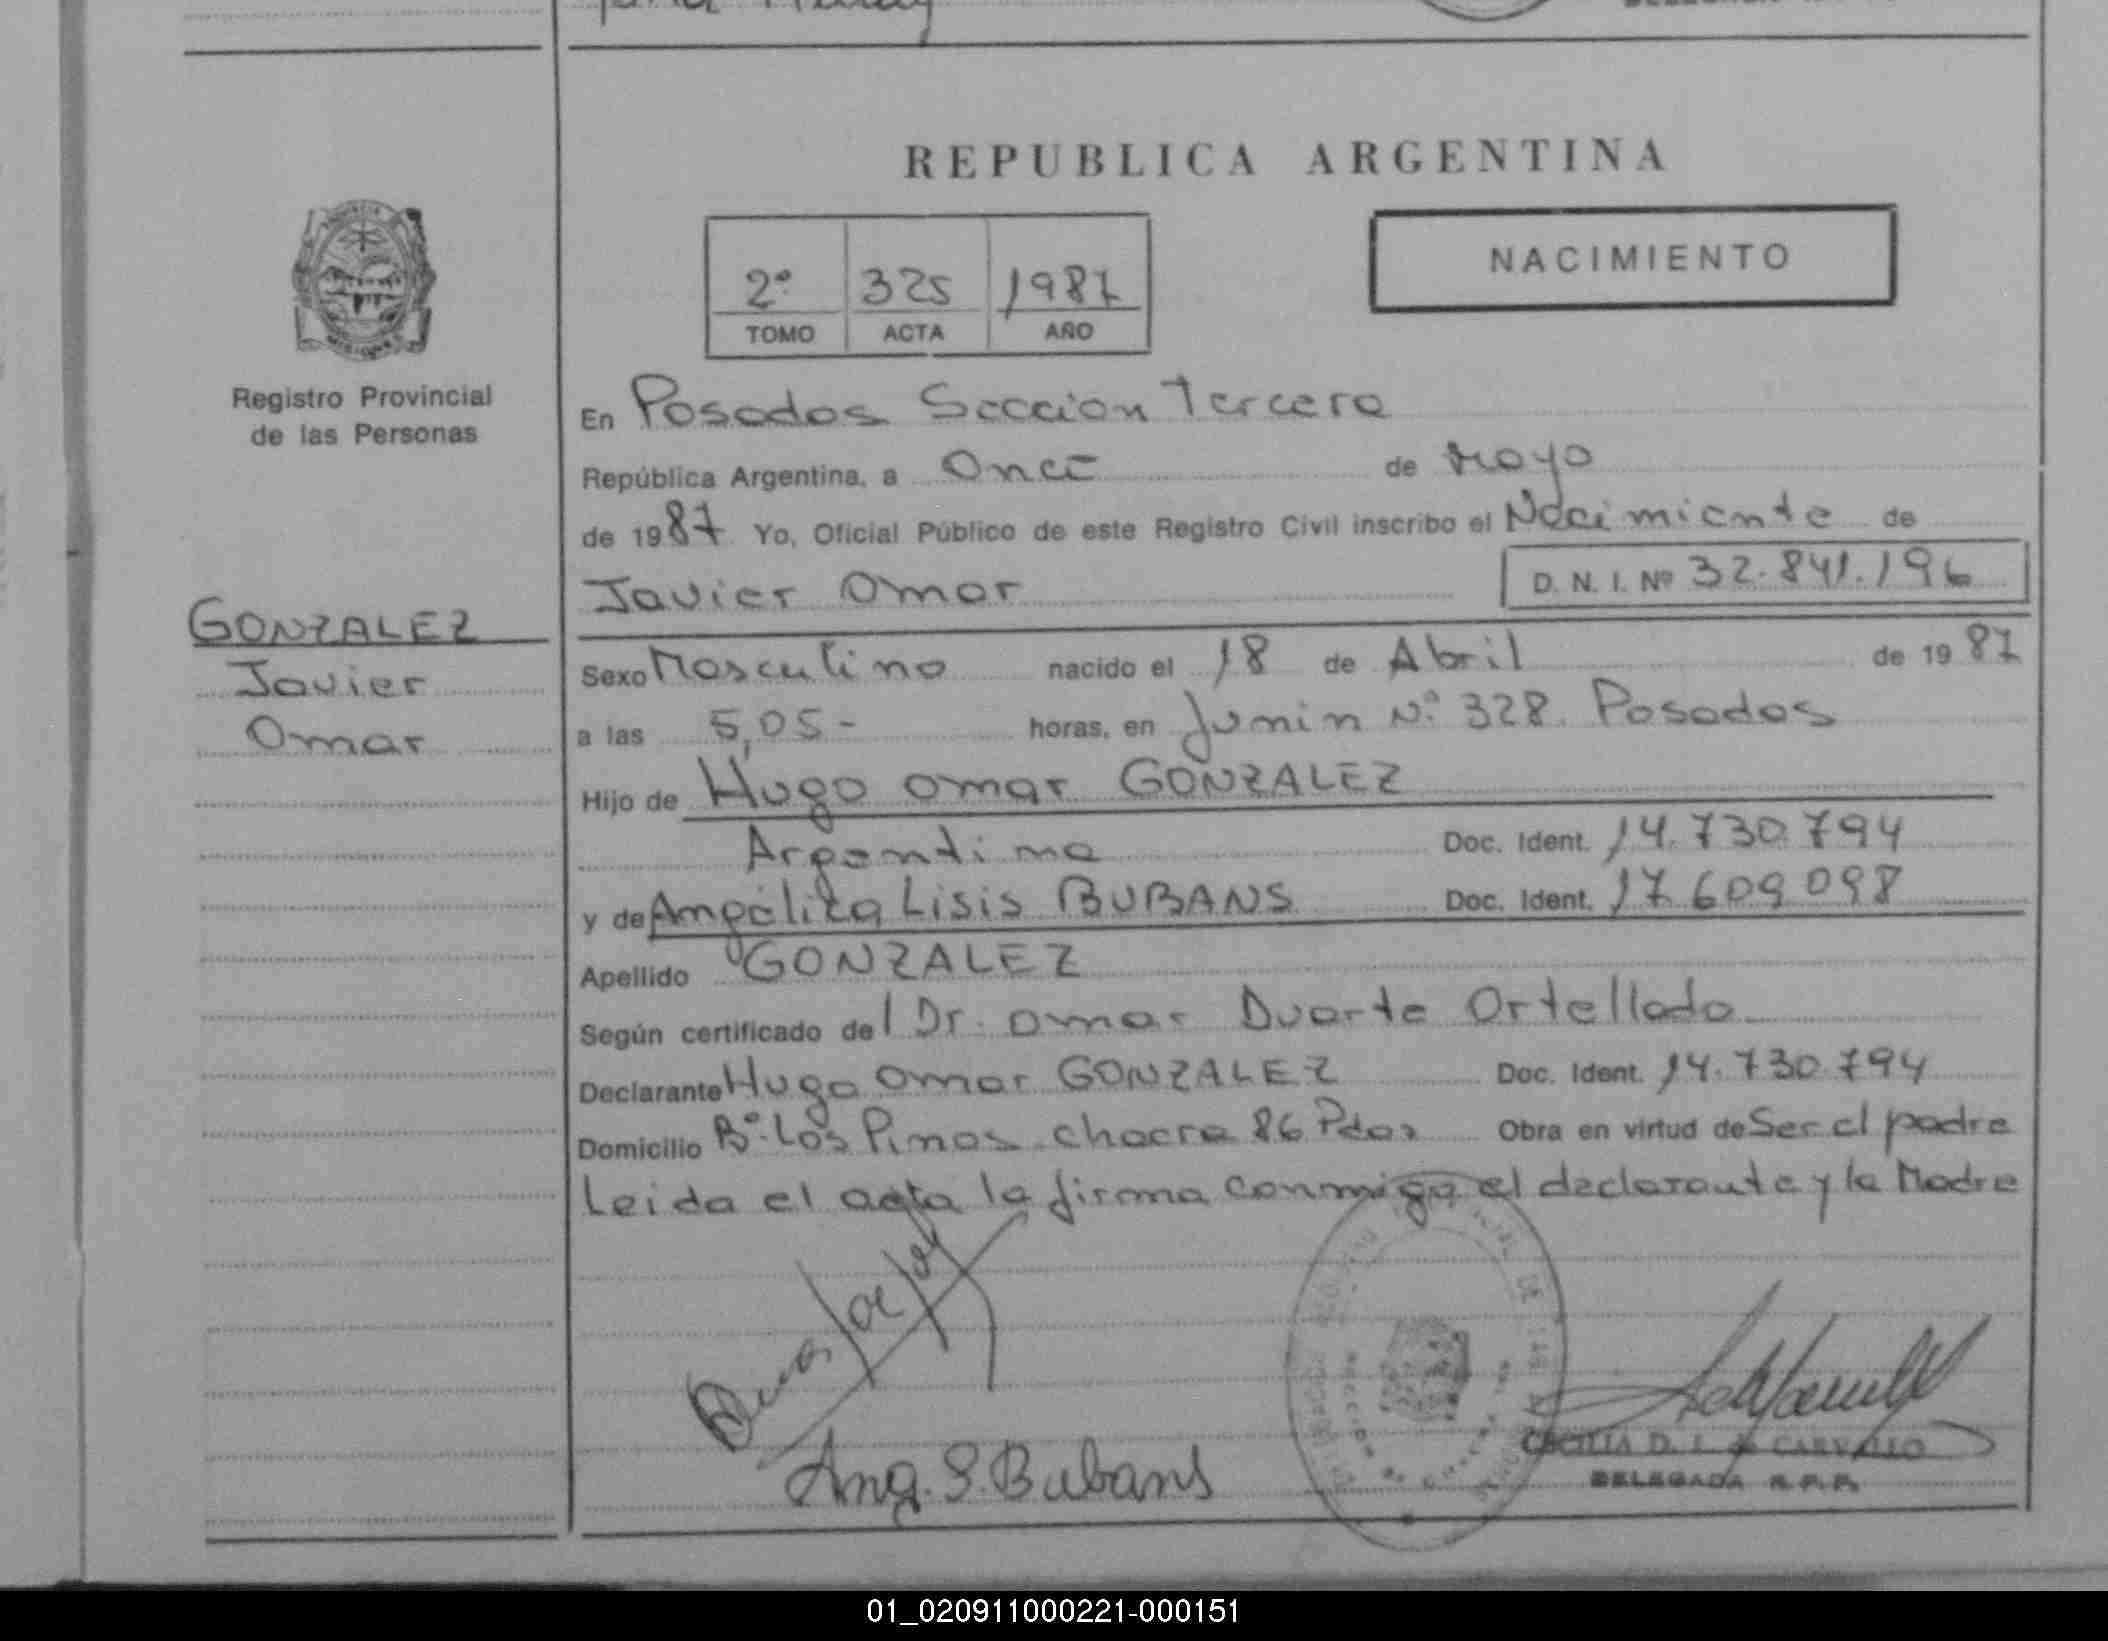 REPUBLICA ARGENTINA
NACIMIENTO
2º 325 1987
TOMO ACTA AÑO
Registro Provincial
de las Personas
GONZALEZ
Javier
Omar
En Posadas Seccion Tercera
República Argentina, a Once de Mayo
de 1987 Yo, Oficial Público de este Registro Civil inscribo el Nacimiento de
Javier Omar D. N. I. Nº 32.841.196
Sexo Masculino nacido el 18 de Abril de 1987
a las 5,05- horas, en Junin Nº 328 Posadas
Hijo de Hugo Omar GONZALEZ
Argentina Doc. Ident. 14.730.794
y de Angélica Lisis BUBANS Doc. Ident. 17.609.098
Apellido GONZALEZ
Según certificado del Dr. Omar Duarte Ortellado
Declarante Hugo Omar GONZALEZ Doc. Ident. 14.730.794
Domicilio Bº Los Pinos chacra 86 Pdas Obra en virtud de Ser el padre
Leida el acta la firma conmigo el declarante y la Madre
Ang. S. Bubans
CECILIA D. CARVALLO
DELEGADA R.P.P.
01_020911000221-000151